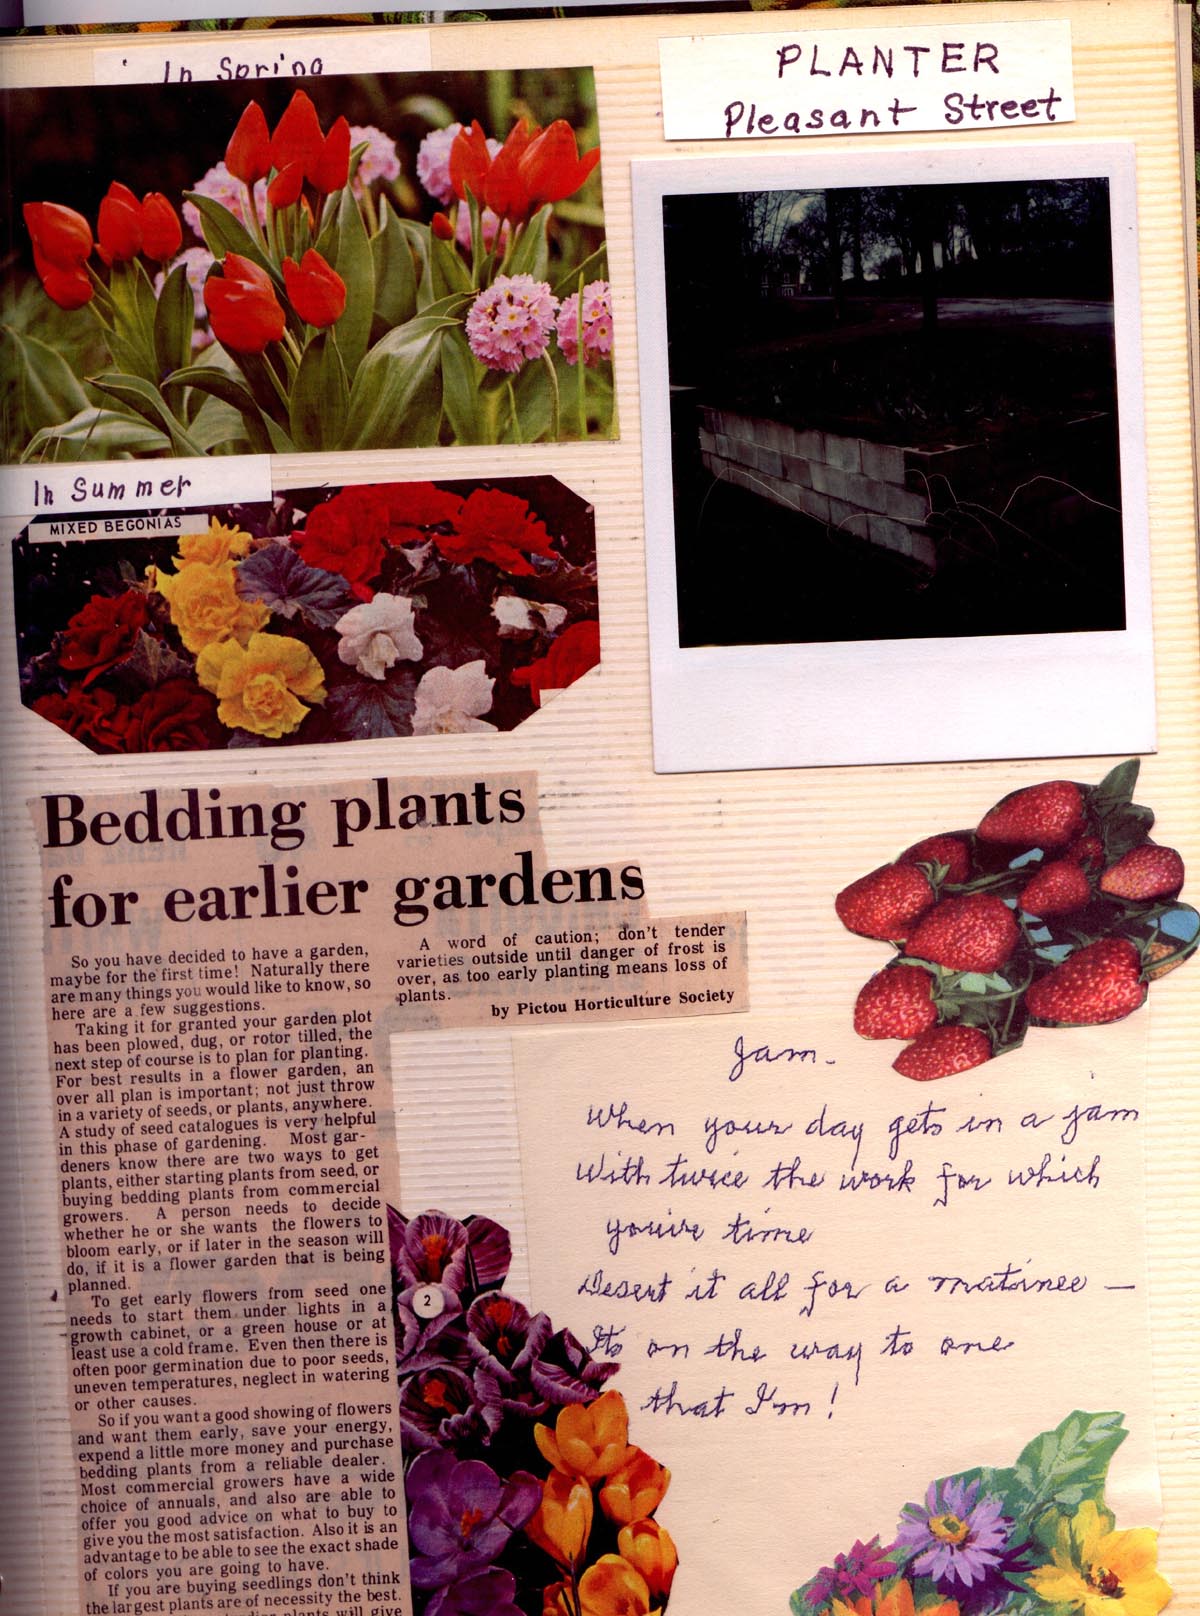 In Spring
PLANTER
Pleasant Street
In Summer
MIXED BEGONIAS
Bedding plants
for earlier gardens
So you have decided to have a garden,
maybe for the first time! Naturally there
are many things you would like to know, so
here are a few suggestions.
Taking it for granted your garden plot
has been plowed, dug, or rotor tilled, the
next step of course is to plan for planting.
For best results in a flower garden, an
over all plan is important; not just throw
in a variety of seeds, or plants, anywhere.
A study of seed catalogues is very helpful
in this phase of gardening. Most gar-
deners know there are two ways to get
plants, either starting plants from seed, or
buying bedding plants from commercial
growers. A person needs to decide
whether he or she wants the flowers to
bloom early, or if later in the season will
do, if it is a flower garden that is being
planned.
To get early flowers from seed one
needs to start them under lights in a
growth cabinet, or a green house or at
least use a cold frame. Even then there is
often poor germination due to poor seeds,
uneven temperatures, neglect in watering
or other causes.
So if you want a good showing of flowers
and want them early, save your energy,
expend a little more money and purchase
bedding plants from a reliable dealer.
Most commercial growers have a wide
choice of annuals, and also are able to
offer you good advice on what to buy to
give you the most satisfaction. Also it is an
advantage to be able to see the exact shade
of colors you are going to have.
If you are buying seedlings don't think
the largest plants are of necessity the best.
plants will give
A word of caution; don't tender
varieties outside until danger of frost is
over, as too early planting means loss of
plants.
by Pictou Horticulture Society
Jam.
When your day gets in a jam
With twice the work for which
you've time
Desert it all for a matinee —
Its on the way to one
that I'm!
2